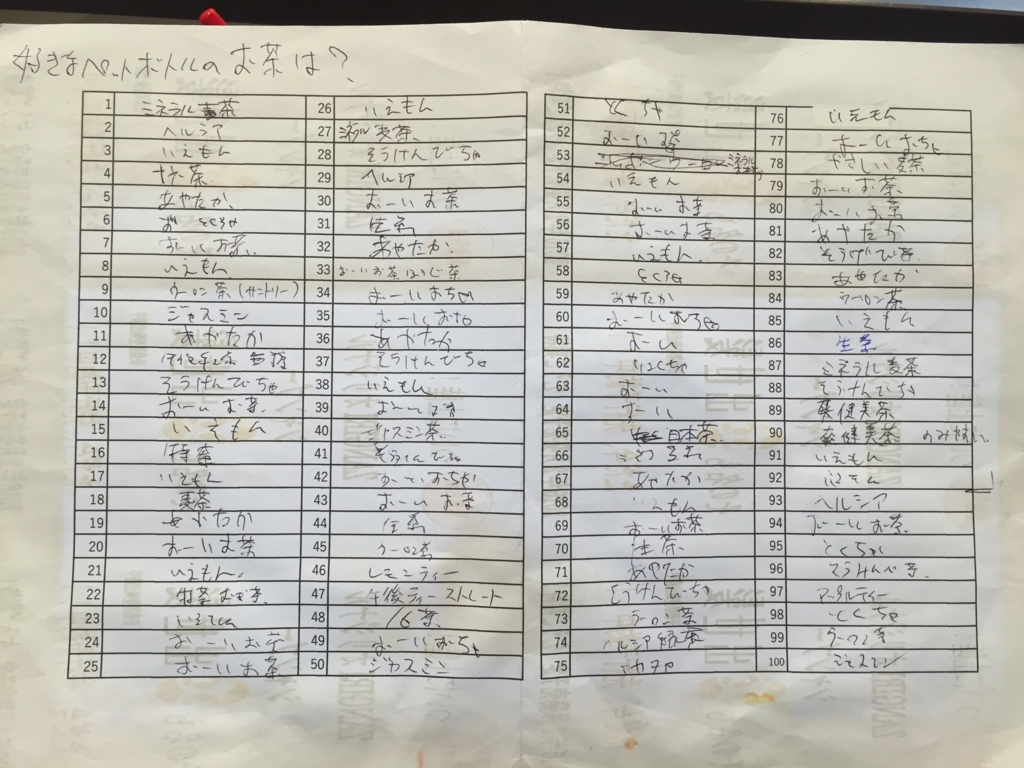 好きなペットボトルのお茶は?
1 ミネラル麦茶
2 ヘルシア
3 いえもん
4 十六茶
5 あやたか
6 とくちゃ
7 おーいお茶
8 いえもん
9 ウーロン茶(サントリー)
10 ジャスミン
11 あやたか
12
13 そうけんびちゃ
14 おーいお茶
15 いえもん
16
17 いえもん
18 麦茶
19 あやたか
20 おーいお茶
21 いえもん
22
23 いえもん
24 おーいお茶
25 おーいお茶
26 いえもん
27 ミネラル麦茶
28 そうけんびちゃ
29 ヘルシア
30 おーいお茶
31 生茶
32 あやたか
33 おーいお茶ほうじ茶
34 おーいおちゃ
35 おーいおちゃ
36 あやたか
37 そうけんびちゃ
38 いえもん
39 おーいお茶
40 ジャスミン茶
41 そうけんびちゃ
42 おーいおちゃ
43 おーいお茶
44 生茶
45 ウーロン茶
46 レモンティー
47 午後ティーストレート
48 16茶
49 おーいおちゃ
50 ジャスミン
51 とくちゃ
52 おーいお茶
53
54 いえもん
55 おーいお茶
56 おーいお茶
57 いえもん
58 とくちゃ
59 あやたか
60 おーいおちゃ
61 おーい
62 りょくちゃ
63 おーい
64 おーい
65 日本茶
66
67 あやたか
68 いえもん
69 おーいお茶
70 生茶
71 あやたか
72 そうけんびちゃ
73 ウーロン茶
74 ヘルシア緑茶
75
76 いえもん
77 おーいおちゃ
78 やさしい麦茶
79 おーいお茶
80 おーいお茶
81 あやたか
82 そうけんび茶
83 あやたか
84 ウーロン茶
85 いえもん
86 生茶
87 ミネラル麦茶
88 そうけんびちゃ
89 爽健美茶
90 爽健美茶 のみやすい
91 いえもん
92 いえもん
93 ヘルシア
94 おーいお茶
95 とくちゃ
96 そうけんび茶
97 アップルティー
98 とくちゃ
99 ウーロン茶
100 ジャスミン